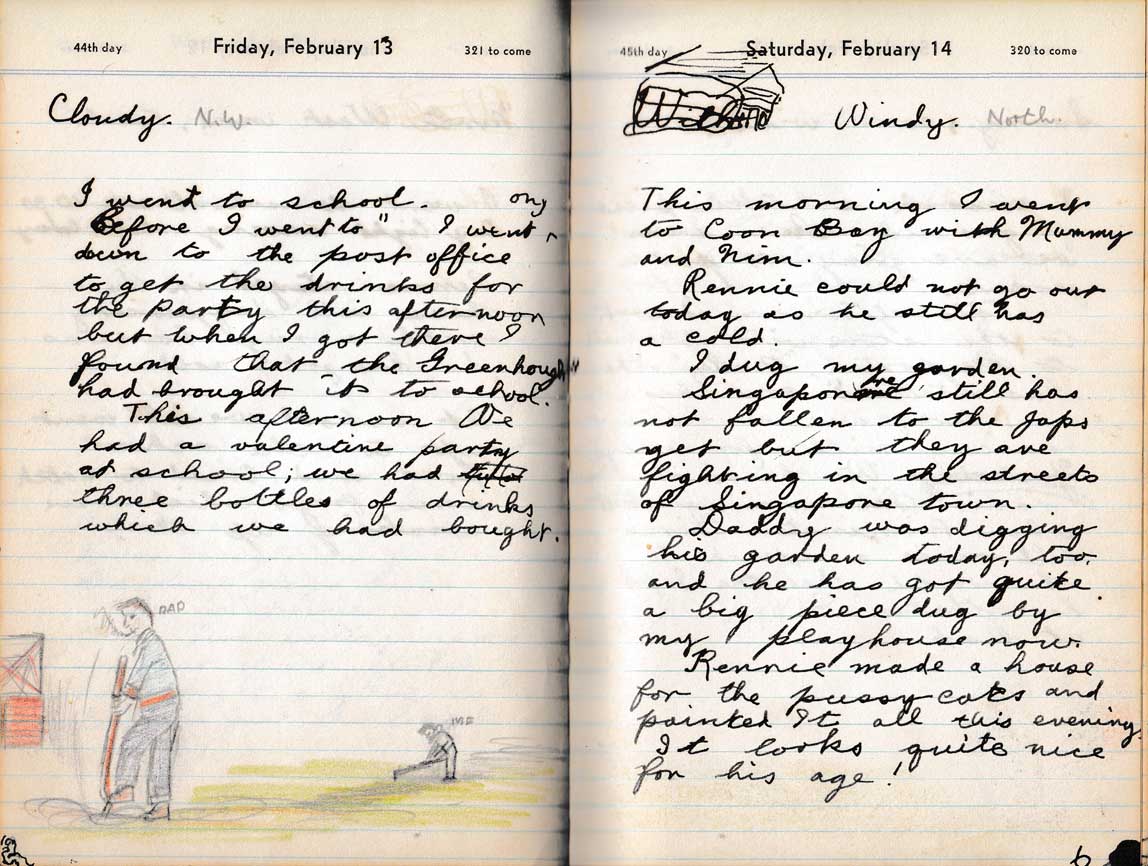 44th day Friday, February 13 321 to come
Cloudy. N.W.
I went to school. on,
Before I went to " I went
down to the post office
to get the drinks for
the party this afternoon
but when I got there I
found that the Greenhough's
had brought it to school.
This afternoon We
had a valentine party
at school; we had
three bottles of drinks
which we had bought.
DAD
ME
45th day Saturday, February 14 320 to come
Windy. North.
This morning I went
to Coon Bay with Mummy
and Nim.
Rennie could not go out
today as he still has
a cold.
I dug my garden.
Singapore still has
not fallen to the Japs
yet but they are
fighting in the streets
of Singapore town.
Daddy was digging
his garden today, too,
and he has got quite
a big piece dug by
my playhouse now.
Rennie made a house
for the pussy cats and
painted It all this evening
It looks quite nice
for his age!